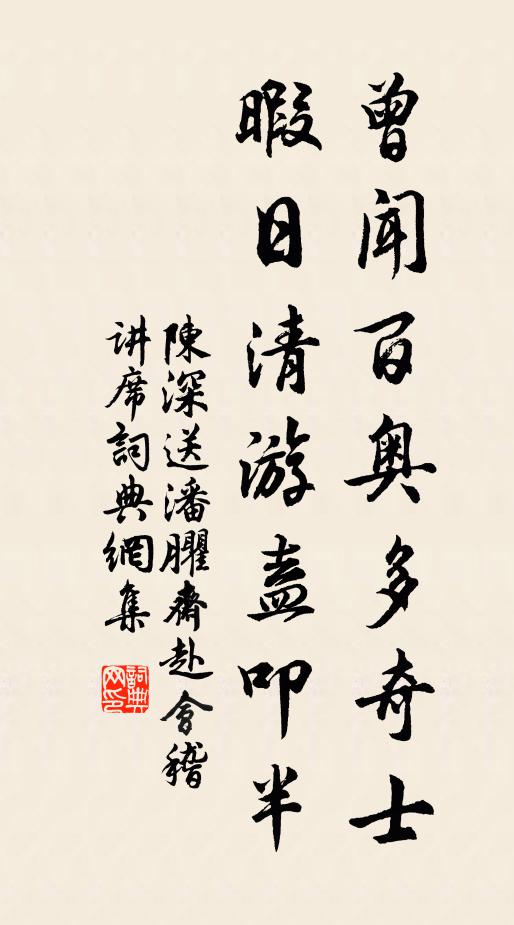 曾闻百奥多奇士
暇日清游盍叩半
陳深送潘臞齋赴会稽
讲席詞典網集
詞典网印